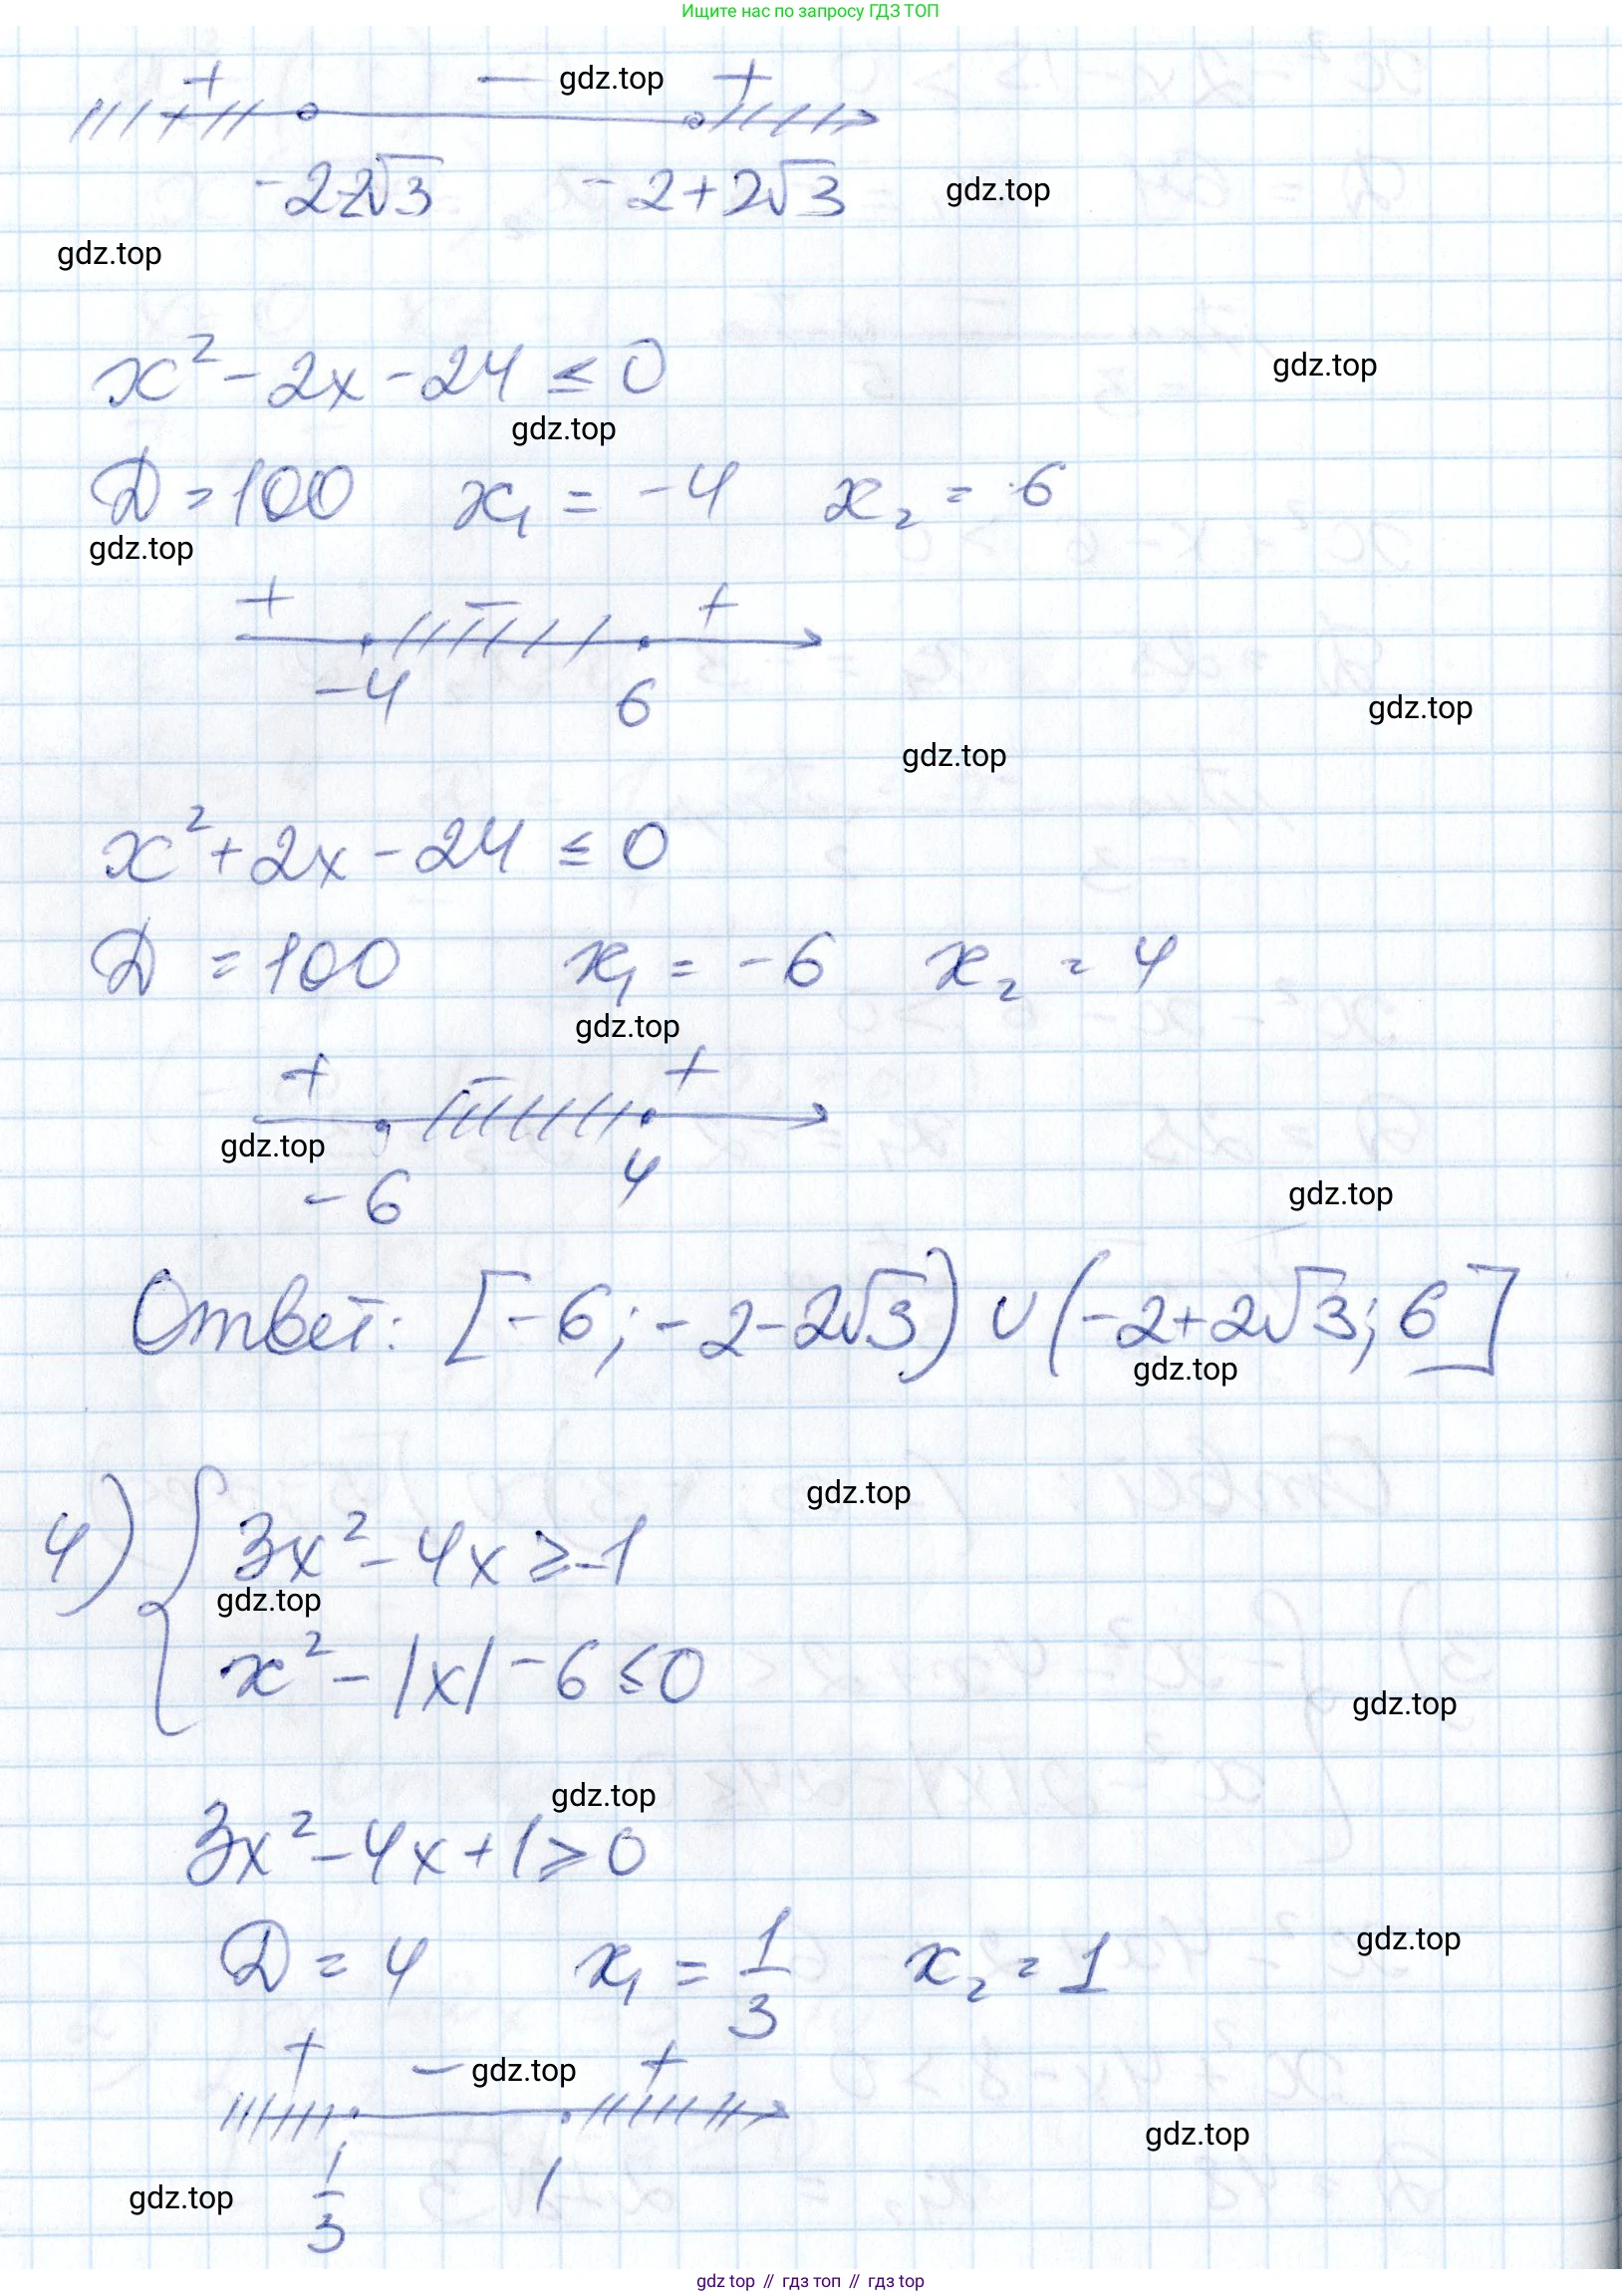 Ищите нас по запросу ГДЗ ТОП
+ − gdz.top +
-2-2√3 -2+2√3 gdz.top
gdz.top
x² - 2x - 24 ≤ 0 gdz.top
gdz.top
D = 100 x₁ = -4 x₂ = 6
gdz.top
+ − +
-4 6
gdz.top
gdz.top
x² + 2x - 24 ≤ 0
D = 100 x₁ = -6 x₂ = 4
gdz.top
+ − +
gdz.top
-6 4
gdz.top
Ответ: [-6; -2-2√3) ∪ (-2+2√3; 6]
gdz.top
gdz.top
4) { 3x² - 4x ≥ -1
gdz.top
x² - |x| - 6 ≤ 0
gdz.top
gdz.top
3x² - 4x + 1 ≥ 0
D = 4 x₁ = 1/3 x₂ = 1 gdz.top
+ − gdz.top +
gdz.top
gdz.top 1/3 1
gdz top // гдз топ // гдз top